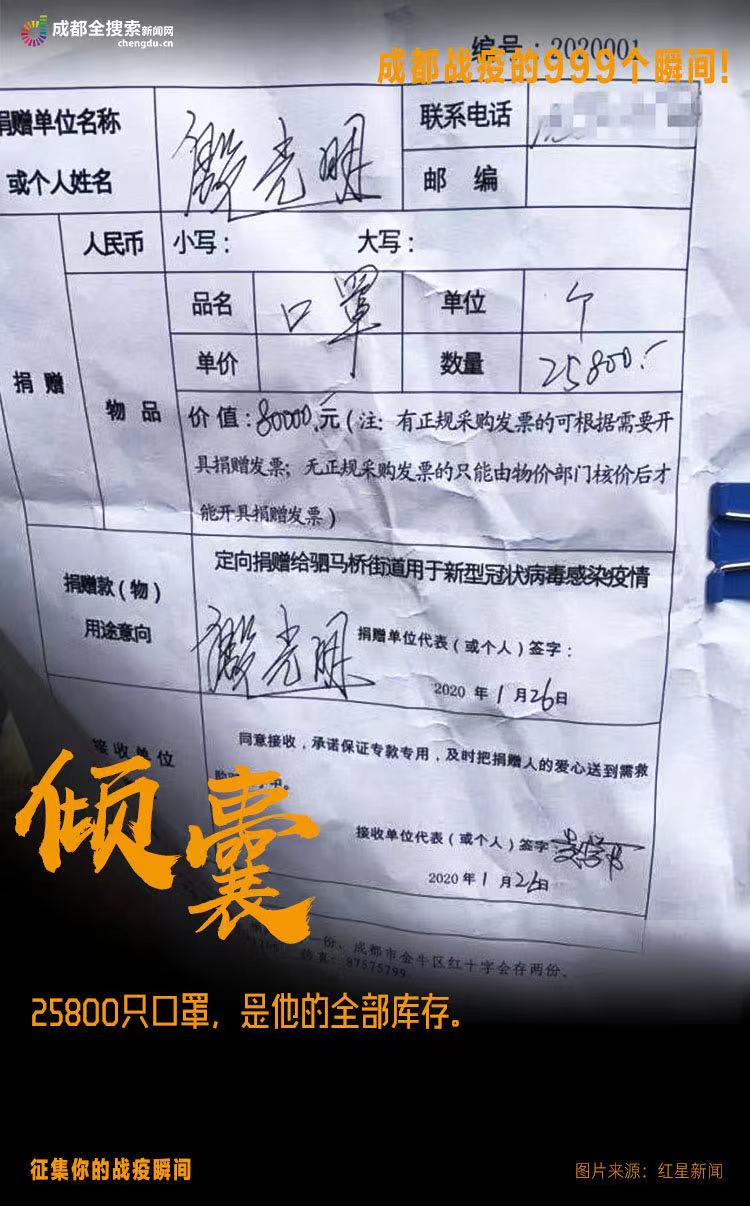 成都全搜索新闻网
chengdu.cn
编号：2020001
成都战疫的999个瞬间！
捐赠单位名称
或个人姓名
光明
联系电话
邮编
捐赠
人民币
小写：
大写：
物品
品名
口罩
单位
个
单价
数量
25800.-
价值：80000.元（注：有正规采购发票的可根据需要开
具捐赠发票；无正规采购发票的只能由物价部门核价后才
能开具捐赠发票）
捐赠款（物）
用途意向
定向捐赠给驷马桥街道用于新型冠状病毒感染疫情
捐赠单位代表（或个人）签字：
光明
2020年1月26日
接收单位
同意接收，承诺保证专款专用，及时把捐赠人的爱心送到需救
接收单位代表（或个人）签字：
2020年1月26日
一份、成都市金牛区红十字会存两份。
传真：87575799
倾囊
25800只口罩，是他的全部库存。
征集你的战疫瞬间
图片来源：红星新闻